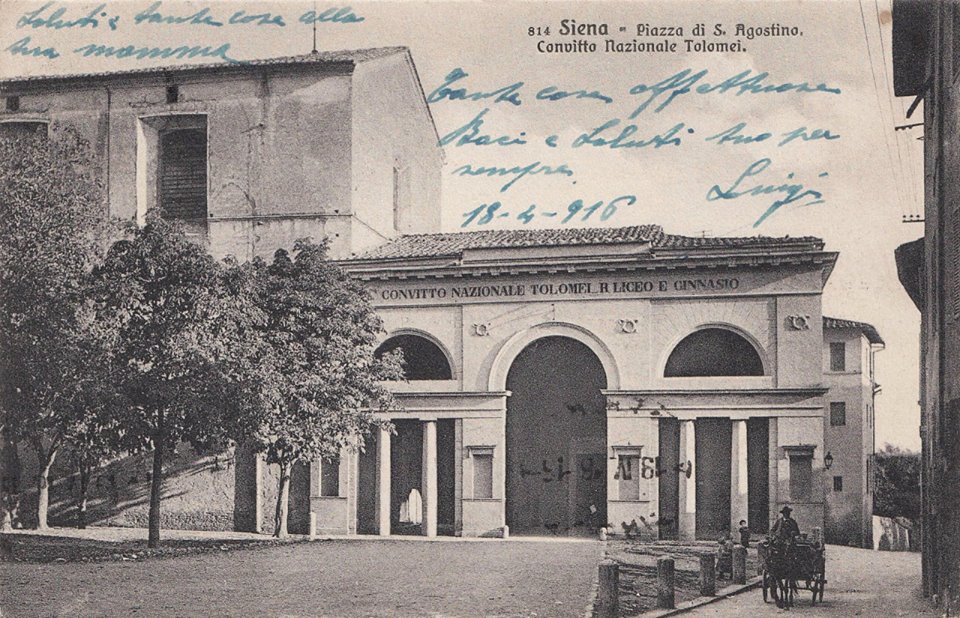 Saluti e tante cose alla
tua mamma
814 Siena - Piazza di S. Agostino.
Convitto Nazionale Tolomei.
Tante cose affettuose
Baci e Saluti tuo per
sempre
Luigi
18-4-916
CONVITTO NAZIONALE TOLOMEI, R. LICEO E GINNASIO